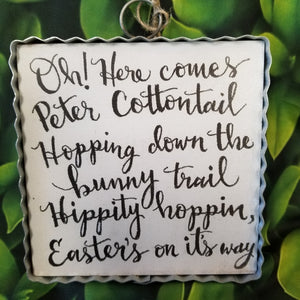 Oh! Here comes
Peter Cottontail
Hopping down the
bunny trail
Hippity hoppin,
Easter's on its way